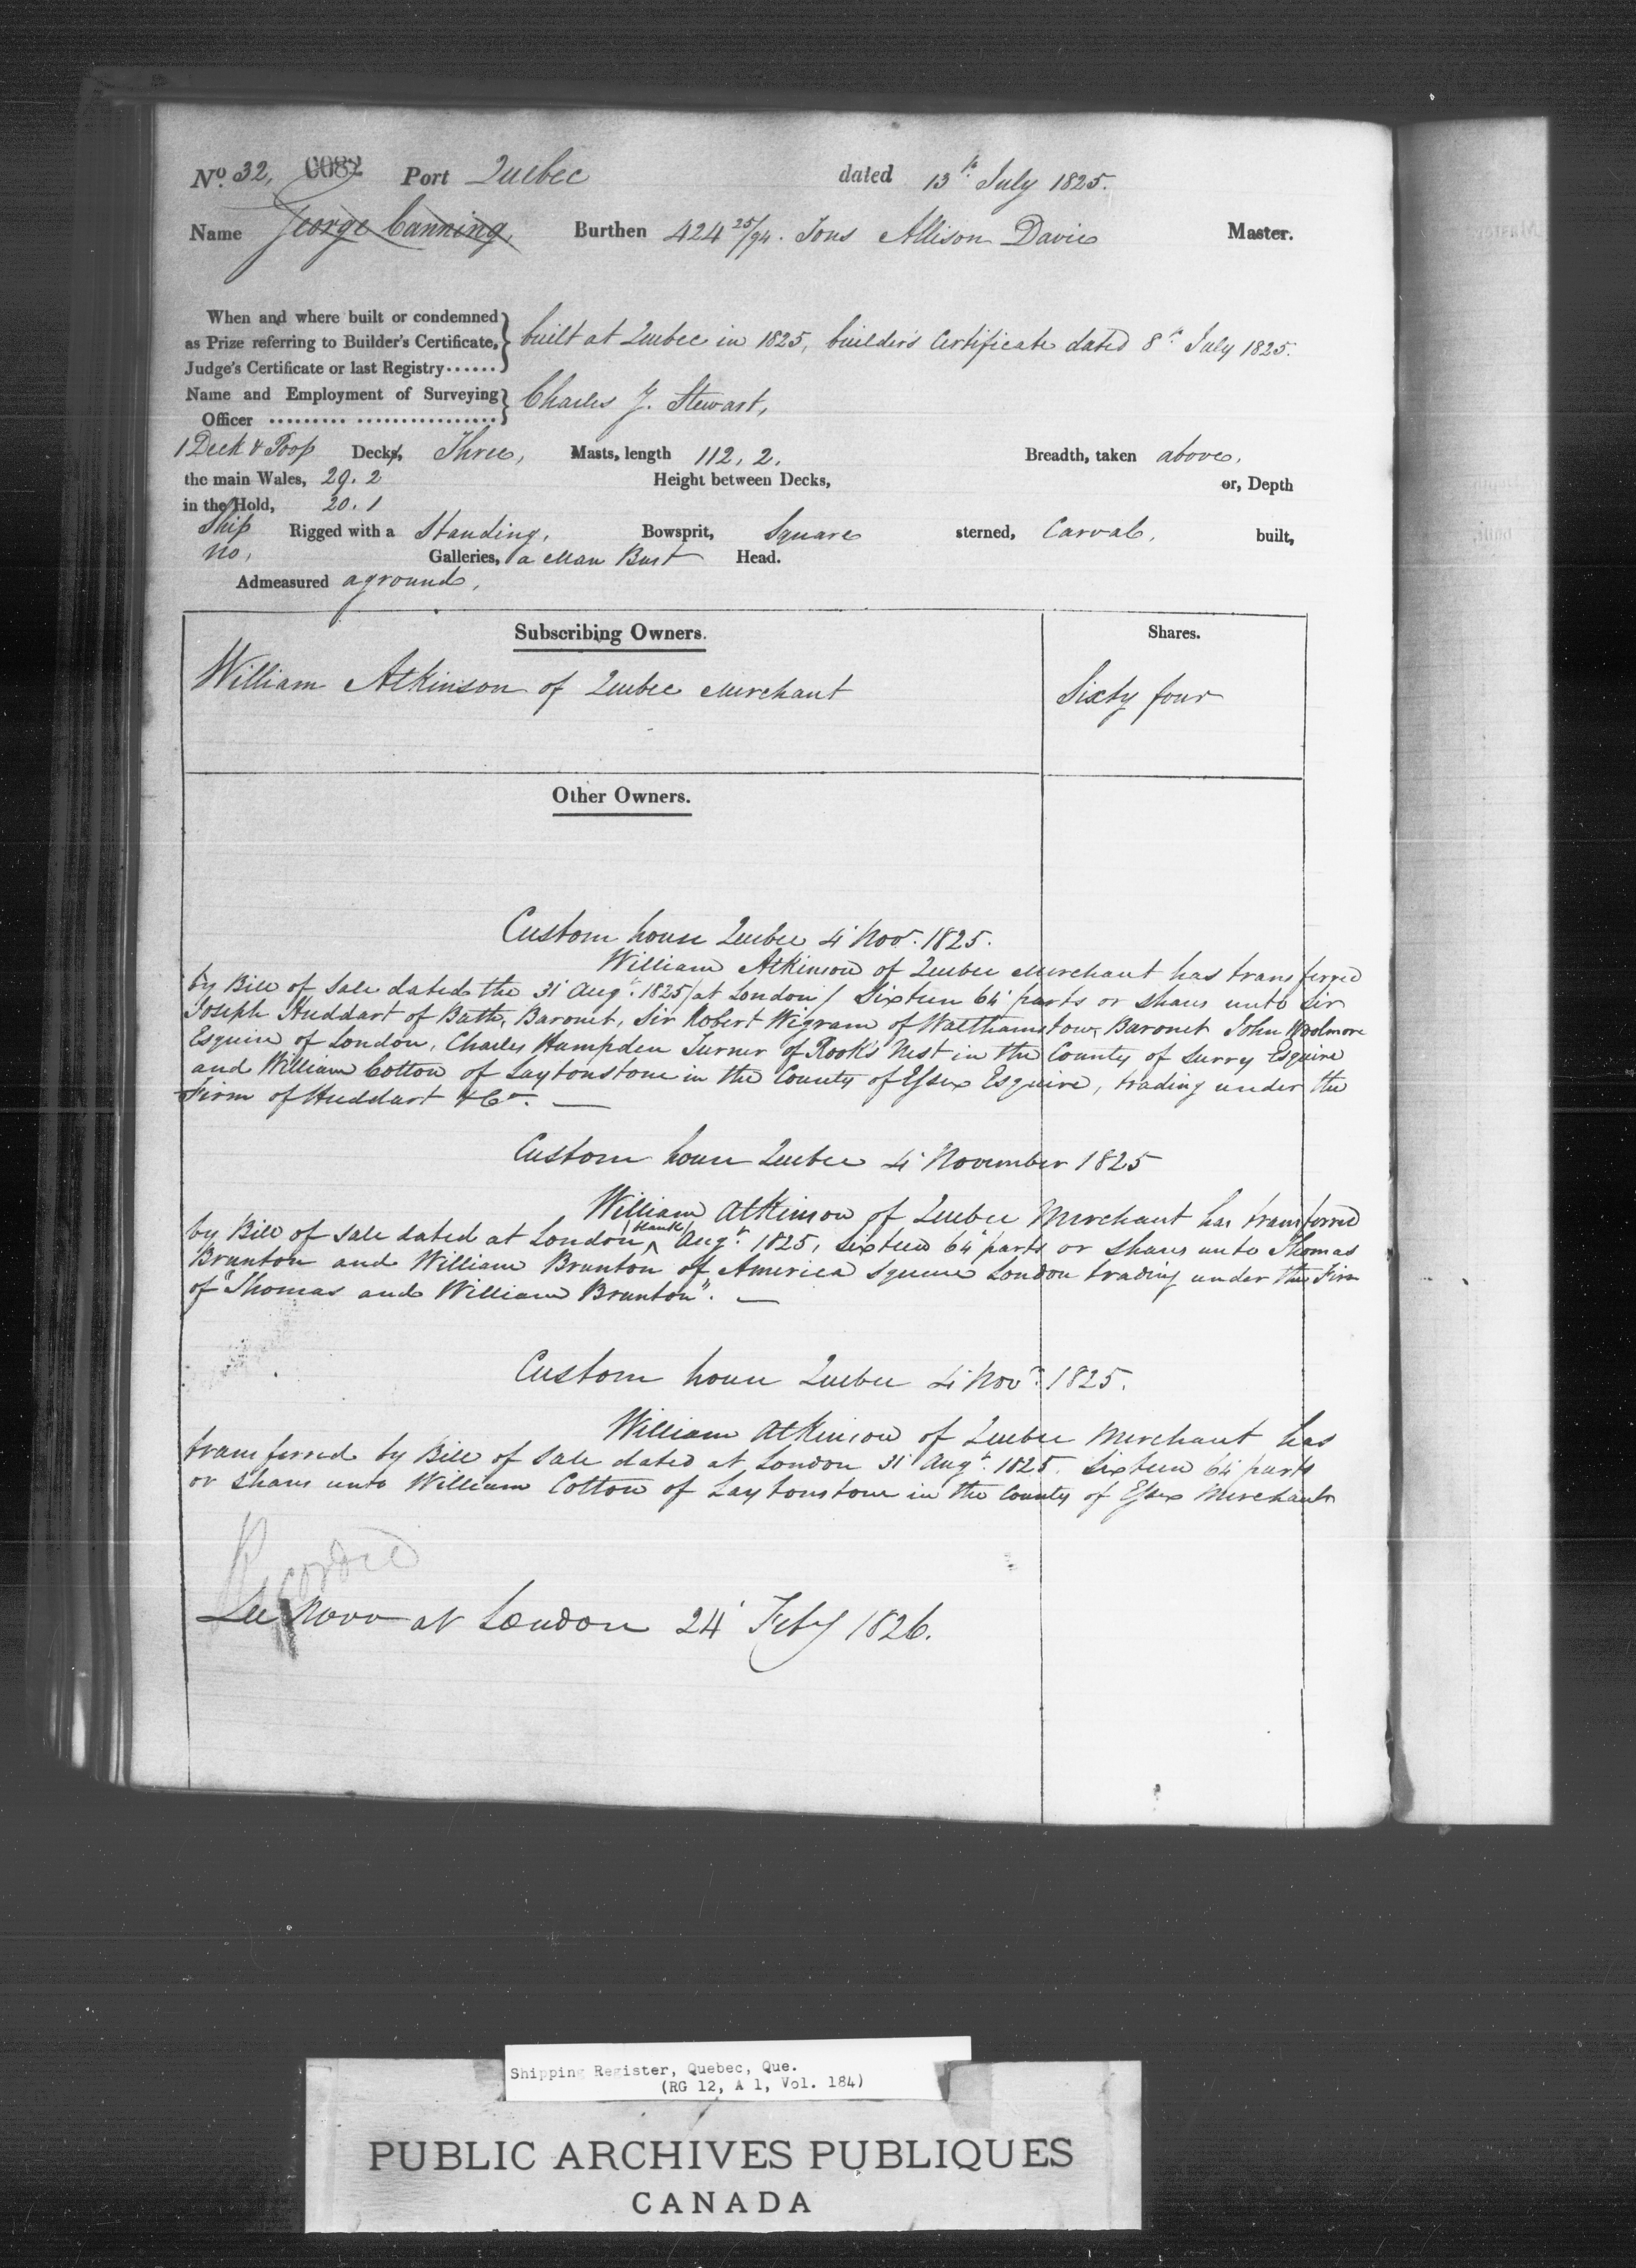 No. 32, 0082 Port Quebec dated 13th July 1825.
Name George Canning, Burthen 424 25/94. Tons Allison Davie Master.
When and where built or condemned
as Prize referring to Builder's Certificate, built at Quebec in 1825, builder's Certificate dated 8th July 1825.
Judge's Certificate or last Registry......
Name and Employment of Surveying Charles J. Stewart,
Officer
1 Deck & Poop Decks, Three, Masts, length 112, 2. Breadth, taken above,
the main Wales, 29. 2 Height between Decks, or, Depth
in the Hold, 20. 1
Ship Rigged with a Standing, Bowsprit, Square sterned, Carval, built,
no, Galleries, a Man Bust Head.
Admeasured aground,
Subscribing Owners. Shares.
William Atkinson of Quebec Merchant Sixty four
Other Owners.
Custom house Quebec 4' Novr. 1825.
William Atkinson of Quebec Merchant has transferred
by Bill of Sale dated the 31' Augt. 1825 /at London/ Sixteen 64' parts or shares unto Sir
Joseph Huddart of Bath, Baronet, Sir Robert Wigram of Walthamstow, Baronet John Woolmore
Esquire of London, Charles Hampden Turner of Rook's Nest in the County of Surry Esquire
and William Cotton of Laytonstone in the County of Essex Esquire, trading under the
Firm of Huddart & Co. —
Custom house Quebec 4' November 1825
William Atkinson of Quebec Merchant has transferred
by Bill of Sale dated at London /blank/ Augt. 1825, Sixteen 64' parts or shares unto Thomas
Brunton and William Brunton of America Square London trading under the Firm
of "Thomas and William Brunton". —
Custom house Quebec 4' Novr. 1825.
William Atkinson of Quebec Merchant has
transferred by Bill of Sale dated at London 31' Augt. 1825. Sixteen 64' parts
or shares unto William Cotton of Laytonstone in the County of Essex Merchant
Recorded
De Novo at London 24' Feby 1826.
Shipping Register, Quebec, Que.
(RG 12, A 1, Vol. 184)
PUBLIC ARCHIVES PUBLIQUES
CANADA